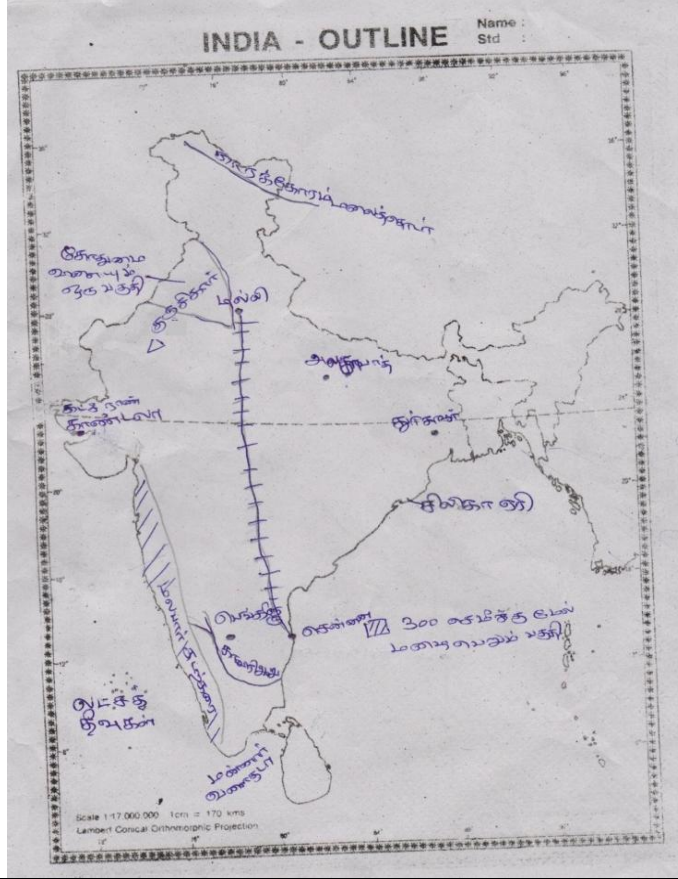 INDIA - OUTLINE
Name :
Std :
காரக்கோரம் மலைத்தொடர்
கோதுமை
விளையும்
ஒரு பகுதி
டில்லி
அலகாபாத்
காண்ட்லா
சிலிகா ஏரி
பெங்களூரு
சென்னை
300 செமீக்கு மேல்
மழை பெறும் பகுதி
மலபார் கடற்கரை
லட்சத்
தீவுகள்
மன்னார்
வளைகுடா
Scale 1:17,000,000 1cm = 170 kms
Lambert Conical Orthomorphic Projection